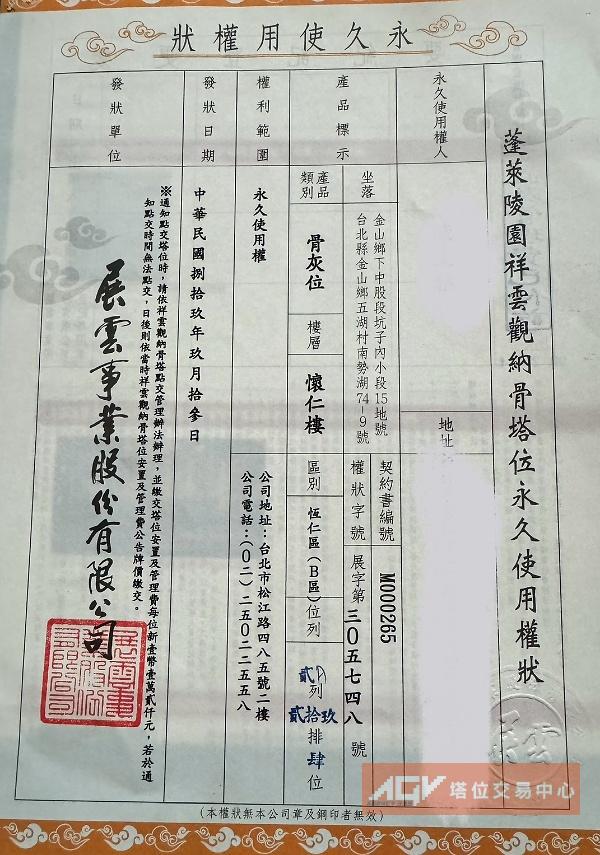 狀權用使久永
蓬萊陵園祥雲觀納骨塔位永久使用權狀
永久使用權人
地址
產品標示
坐落
金山鄉下中股段坑子內小段15地號
台北縣金山鄉五湖村南勢湖74-9號
契約書編號
M000265
權狀字號
展字第三〇五七四八號
產品類別
骨灰位
樓層
懷仁樓
區別
恆仁區(B區)
位列
貳列貳拾玖排肆位
權利範圍
永久使用權
公司地址：台北市松江路四八五號二樓
公司電話：(〇二)二五〇二二五五八
發狀日期
中華民國捌拾玖年玖月拾參日
發狀單位
※通知點交塔位時，請依祥雲觀納骨塔點交管理辦法辦理，並繳交塔位安置及管理費每位新壹幣壹萬貳仟元，若於通
知點交時間無法點交，日後則依當時祥雲觀納骨塔位安置及管理費公告牌價繳交。
展雲事業股份有限公司
展雲
(本權狀無本公司章及鋼印者無效)
AGV 塔位交易中心